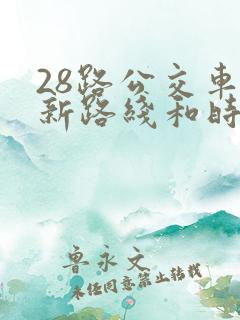 28路公交车
新路线和时
鲁永文
未经同意禁止转载